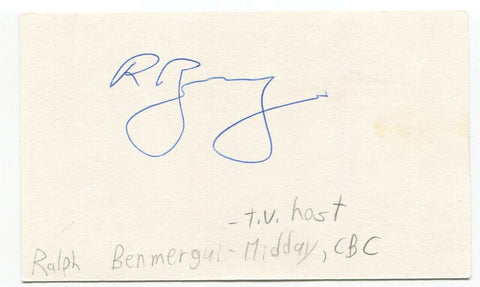 R Benmergui
- T.V. host
Ralph Benmergui - Midday, CBC